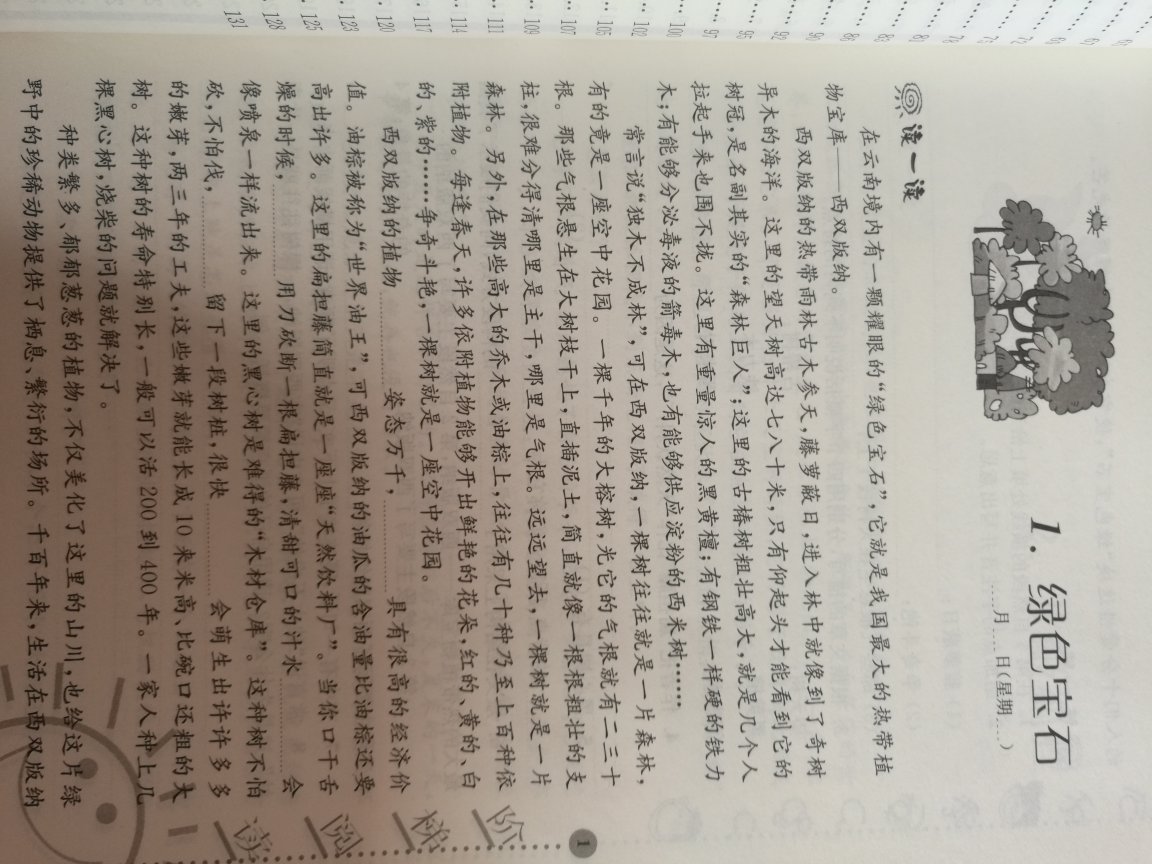 68
67
66
72
75
78
81
83
86
90
92
95
97
100
102
105
107
109
111
114
117
120
123
125
128
131
1. 绿色宝石
月 日(星期 )
读一读
在云南境内有一颗耀眼的“绿色宝石”,它就是我国最大的热带植
物宝库——西双版纳。
西双版纳的热带雨林古木参天,藤萝蔽日,进入林中就像到了奇树
异木的海洋。这里的望天树高达七八十米,只有仰起头才能看到它的
树冠,是名副其实的“森林巨人”;这里的古椿树粗壮高大,就是几个人
拉起手来也围不拢。这里有重量惊人的黑黄檀;有钢铁一样硬的铁力
木;有能够分泌毒液的箭毒木,也有能够供应淀粉的西米树……
常言说“独木不成林”,可在西双版纳,一棵树往往就是一片森林,
有的竟是一座空中花园。一棵千年的大榕树,光它的气根就有二三十
根。那些气根悬生在大树枝干上,直插泥土,简直就像一根根粗壮的支
柱,很难分得清哪里是主干,哪里是气根。远远望去,一棵树就是一片
森林。另外,在那些高大的乔木或油棕上,往往有几十种乃至上百种依
附植物。每逢春天,许多依附植物能够开出鲜艳的花朵,红的、黄的、白
的、紫的……争奇斗艳,一棵树就是一座空中花园。
西双版纳的植物 姿态万千, 具有很高的经济价
值。油棕被称为“世界油王”,可西双版纳的油瓜的含油量比油棕还要
高出许多。这里的扁担藤简直就是一座座“天然饮料厂”。当你口干舌
燥的时候, 用刀砍断一根扁担藤,清甜可口的汁水 会
像喷泉一样流出来。这里的黑心树是难得的“木材仓库”。这种树不怕
砍,不怕伐, 留下一段树桩,很快 会萌生出许许多多
的嫩芽,两三年的工夫,这些嫩芽就能长成10来米高、比碗口还粗的大
树。这种树的寿命特别长,一般可以活200到400年。一家人种上几
棵黑心树,烧柴的问题就解决了。
种类繁多、郁郁葱葱的植物,不仅美化了这里的山川,也给这片绿
野中的珍稀动物提供了栖息、繁衍的场所。千百年来,生活在西双版纳
阶梯阅读
1